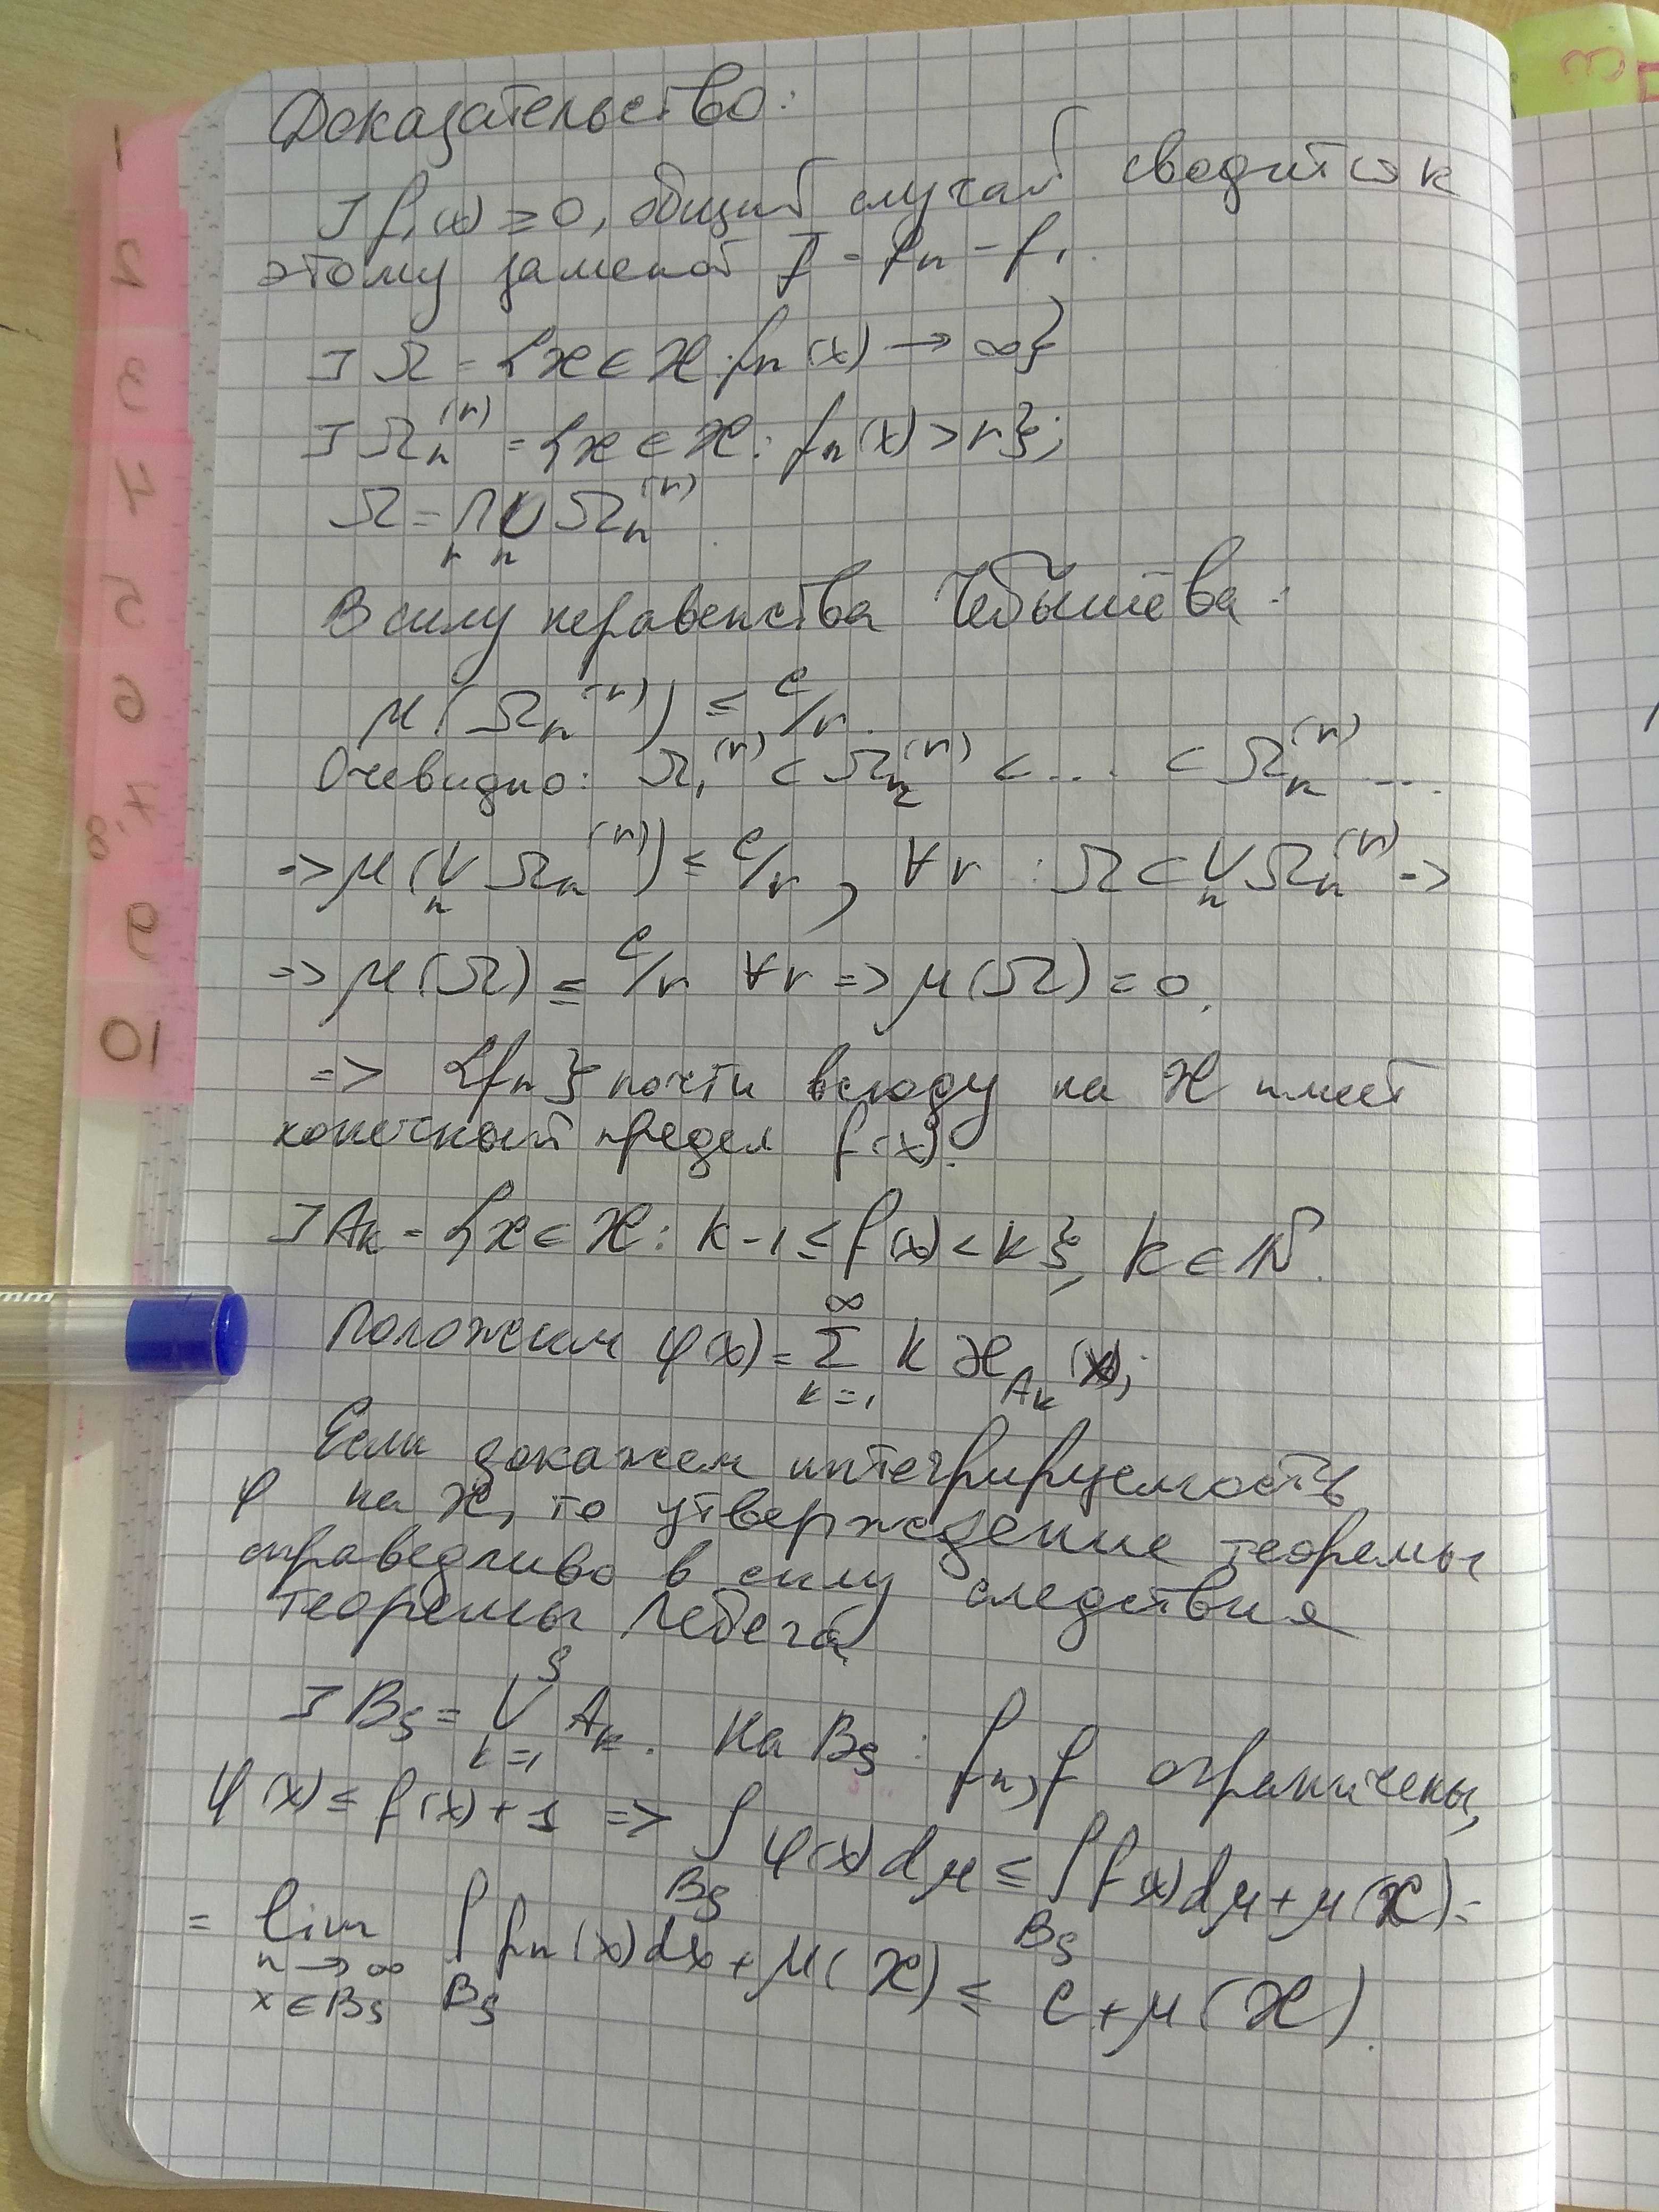 Доказательство:
] f₁(x) ≥ 0, общий случай сводится к
этому заменой f̄ = fₙ - f₁.
] Ω = {x ∈ X: fₙ(x) → ∞}
] Ωₙ⁽ʳ⁾ = {x ∈ X: fₙ(x) > r};
Ω = ∩ᵣ ∪ₙ Ωₙ⁽ʳ⁾.
В силу неравенства Чебышёва:
μ(Ωₙ⁽ʳ⁾) ≤ C/r.
Очевидно: Ω₁⁽ʳ⁾ ⊂ Ω₂⁽ʳ⁾ ⊂ ... ⊂ Ωₙ⁽ʳ⁾ ...
=> μ(∪ₙ Ωₙ⁽ʳ⁾) ≤ C/r, ∀r : Ω ⊂ ∪ₙ Ωₙ⁽ʳ⁾ =>
=> μ(Ω) ≤ C/r ∀r => μ(Ω) = 0.
=> {fₙ} почти всюду на X имеет
конечный предел f(x).
] Aₖ = {x ∈ X: k-1 ≤ f(x) < k}, k ∈ ℕ.
Положим φ(x) = ∑_{k=1}^{∞} k χ_{Aₖ}(x);
Если докажем интегрируемость
φ на X, то утверждение теоремы
справедливо в силу следствия
теоремы Лебега
] B_s = ∪_{k=1}^{s} Aₖ. На B_s: fₙ, f ограничены,
φ(x) ≤ f(x) + 1 => ∫_{B_s} φ(x)dμ ≤ ∫_{B_s} f(x)dμ + μ(X) =
= lim_{n→∞, x∈B_s} ∫_{B_s} fₙ(x)dx + μ(X) ≤ C + μ(X).
1
2
3
4
5
6
7,8
9
10
mm
3